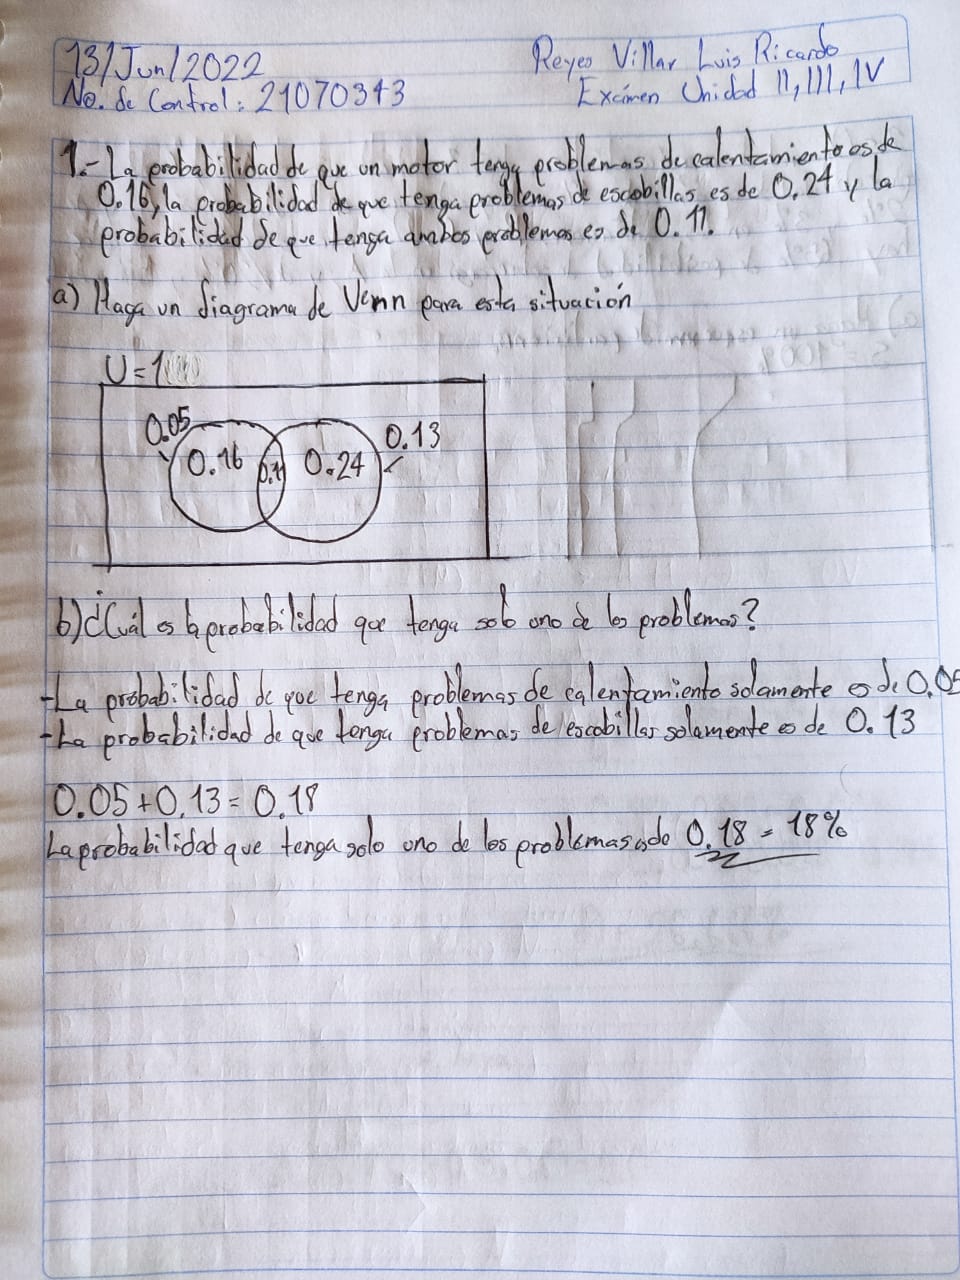 13/Jun/2022
Reyes Villar Luis Ricardo
No. de Control: 21070343
Exámen Unidad II, III, IV
1.- La probabilidad de que un motor tenga problemas de calentamiento es de
0.16, la probabilidad de que tenga problemas de escobillas es de 0.24 y la
probabilidad de que tenga ambos problemas es de 0.11.
a) Haga un diagrama de Venn para esta situación
U = 1
0.05
0.13
0.16 0.11 0.24
b) ¿Cuál es la probabilidad que tenga solo uno de los problemas?
-La probabilidad de que tenga problemas de calentamiento solamente es de 0.05
-La probabilidad de que tenga problemas de escobillas solamente es de 0.13
0.05 + 0.13 = 0.18
La probabilidad que tenga solo uno de los problemas es de 0.18 = 18%